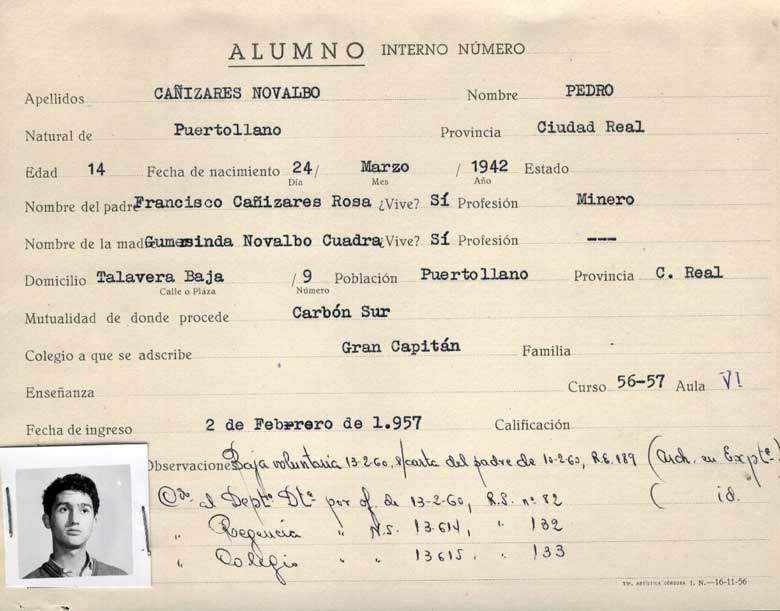 ALUMNO INTERNO NÚMERO
Apellidos CAÑIZARES NOVALBO Nombre PEDRO
Natural de Puertollano Provincia Ciudad Real
Edad 14 Fecha de nacimiento 24 / Marzo / 1942 Estado
Día Mes Año
Nombre del padre Francisco Cañizares Rosa ¿Vive? Sí Profesión Minero
Nombre de la madre Gumersinda Novalbo Cuadra ¿Vive? Sí Profesión ---
Domicilio Talavera Baja / 9 Población Puertollano Provincia C. Real
Calle o Plaza Número
Mutualidad de donde procede Carbón Sur
Colegio a que se adscribe Gran Capitán Familia
Enseñanza Curso 56-57 Aula VI
Fecha de ingreso 2 de Febrero de 1.957 Calificación
Observaciones Baja voluntaria 13-2-60, s/carta del padre de 10-2-60, R.E. 189 (Arch. en Expte.)
Cdo. al Depto. Dte. por of. de 13-2-60, R.S. nº 82 ( id.
" Regencia " N.S. 13.614, " 132
" Colegio " " 13615, " 133
TIP. ARTÍSTICA CÓRDOBA I. N.—16-11-56